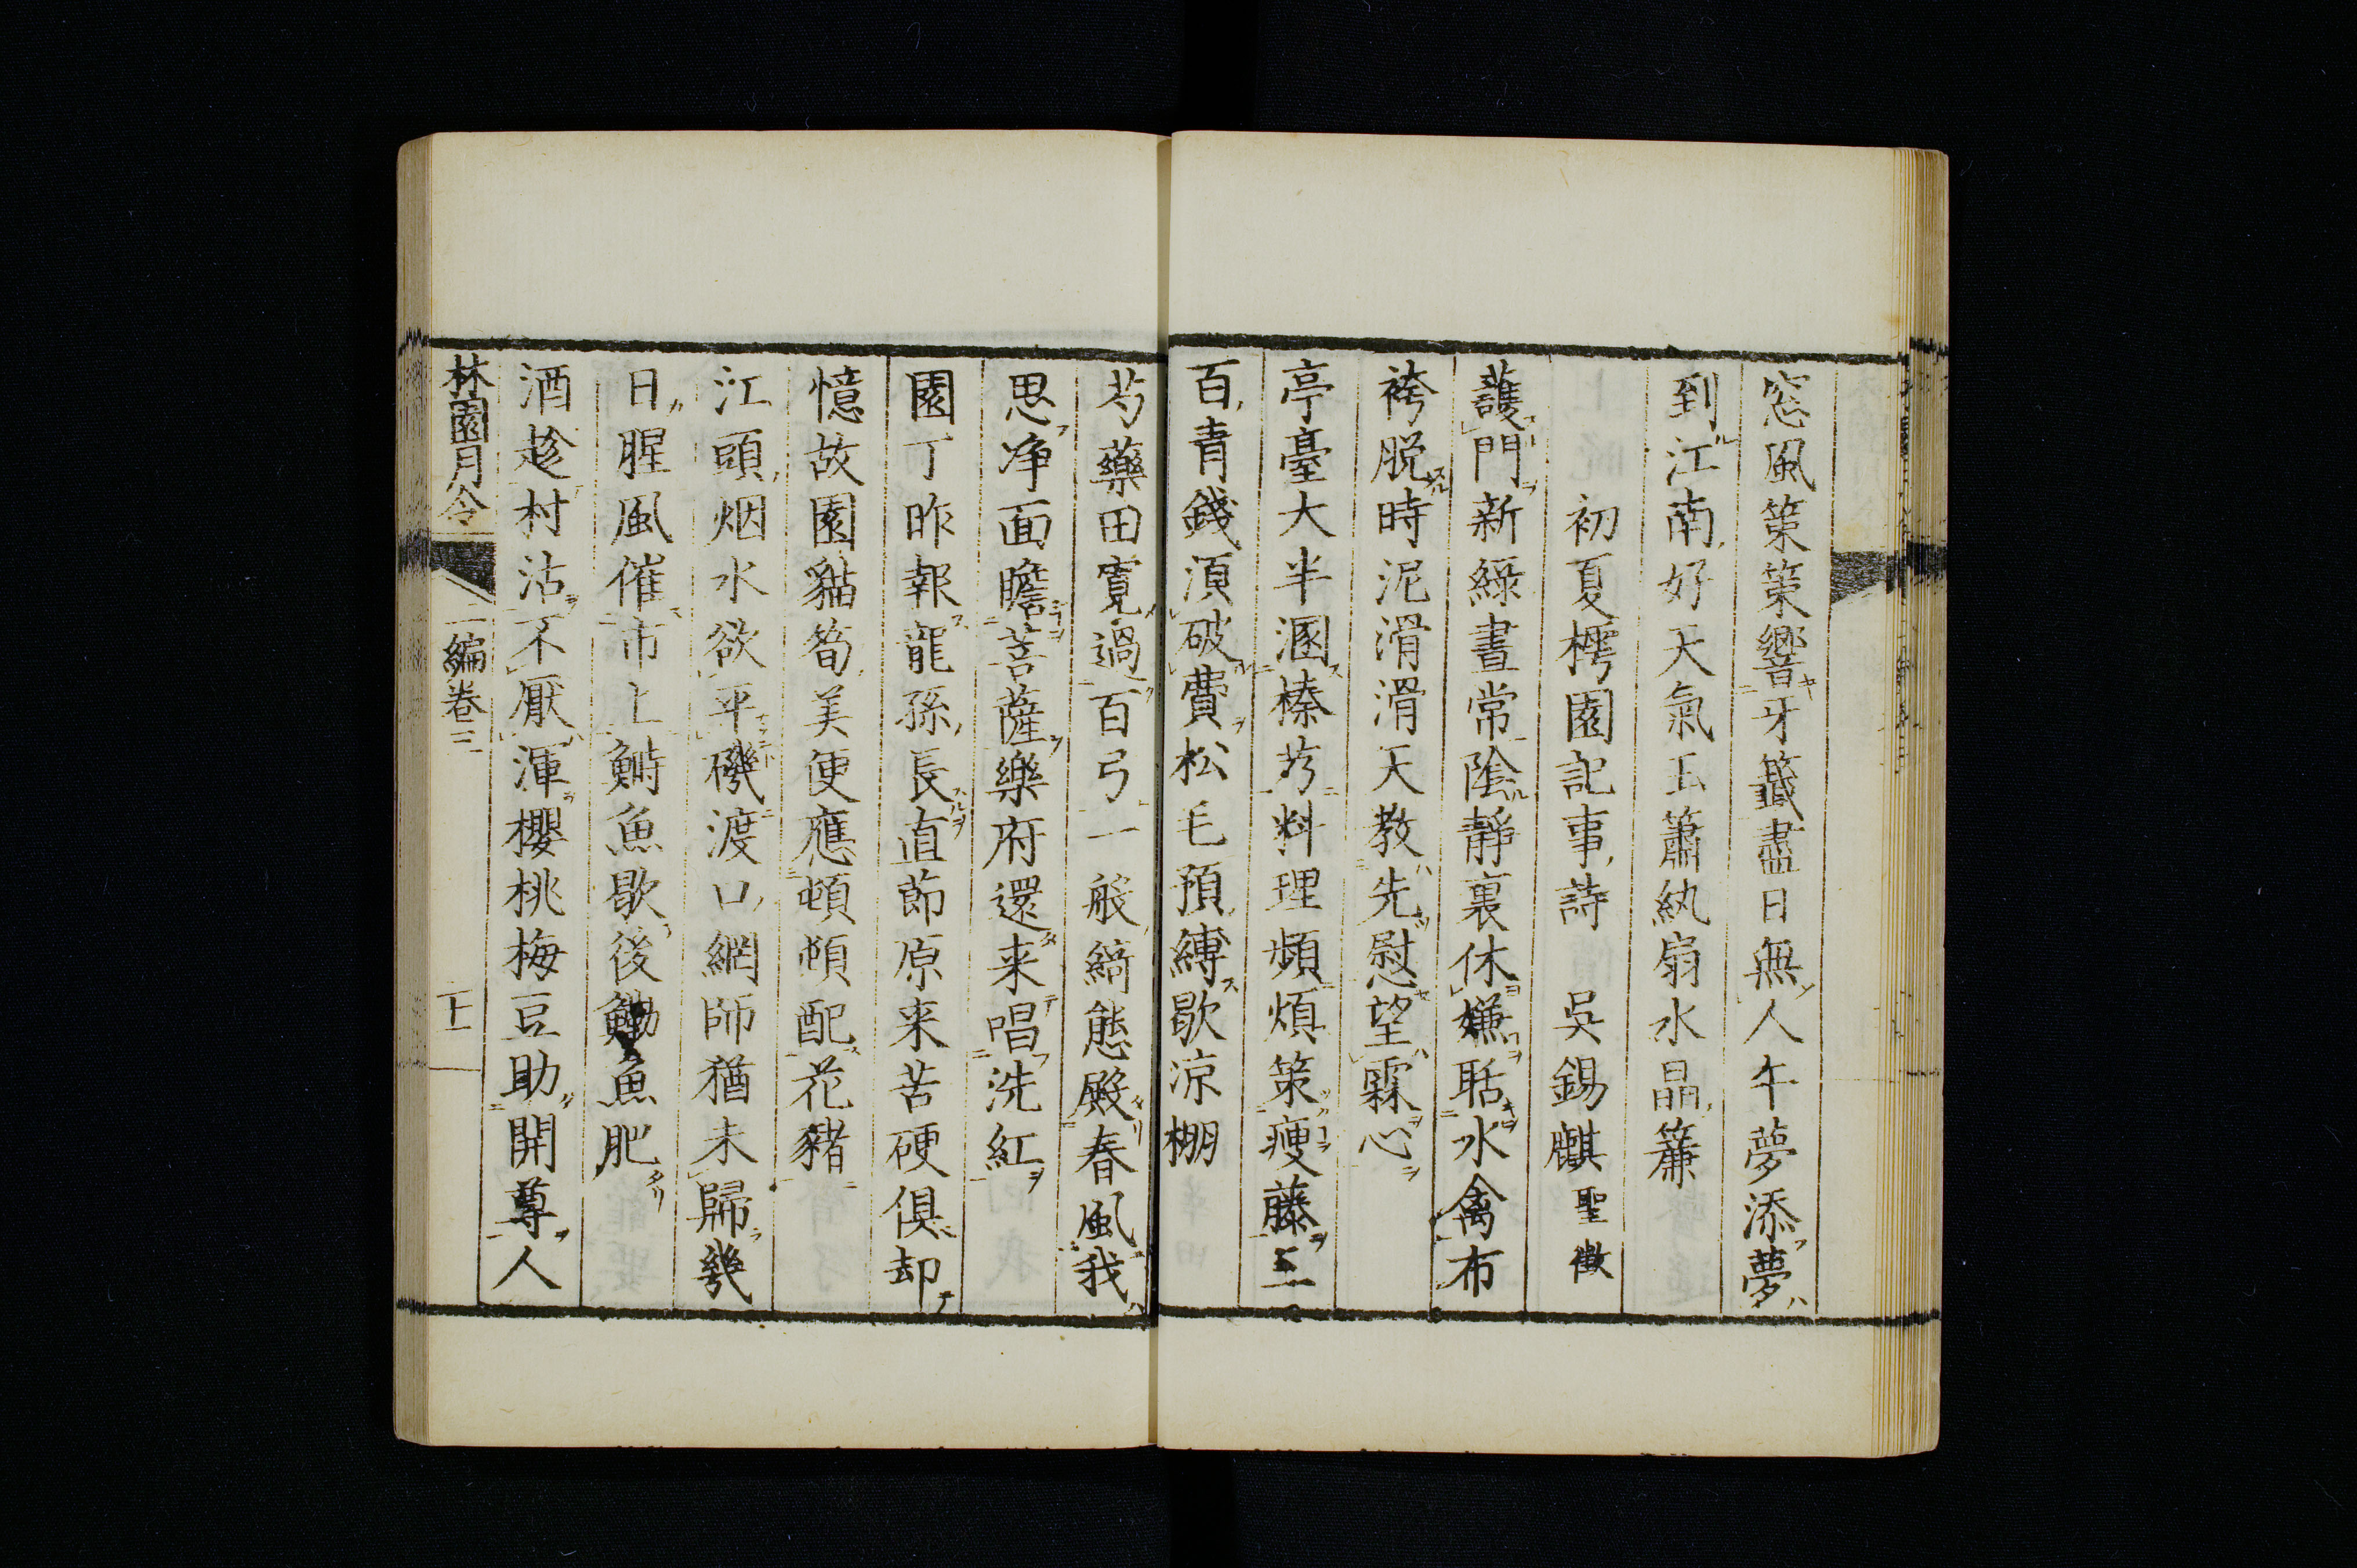 窓風策策響牙籤盡日無人午夢添夢
到江南好天氣玉簫紈扇水晶簾
初夏樗園記事詩 吳錫麒聖徵
護門新綠晝常陰靜裏休嫌聒水禽布
袴脱時泥滑滑天教先慰望霖心
亭臺大半溷榛芿料理頻煩策瘦藤三
百青錢湏破費松毛預縛歇涼棚
芍藥田寛過百弓一般綺態殿春風我
思净面瞻菩薩樂府還来唱洗紅
園丁昨報龍孫長直節原来苦硬俱却
憶故園貓筍美便應頓頓配花豬
江頭烟水欲平磯渡口網師猶未歸幾
日腥風催市上鰣魚歇後鰳魚肥
酒趁村沽不厭渾櫻桃梅豆助開尊人
林園月令 二編卷三 十一